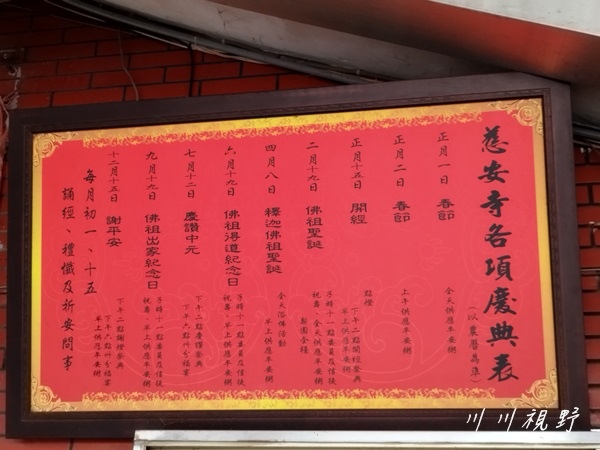 慈安寺各項慶典表
(以農曆為準)
正月一日 春節
全天供應平安粥
正月二日 春節
上午供應平安粥
正月十五日 開經
點燈
下午二點開經祭典
早上供應平安粥
二月十九日 佛祖聖誕
子時十一點委員及信徒
祝壽、全天供應平安粥
四月八日 釋迦佛祖聖誕
全天浴佛活動
早上供應平安粥
六月十九日 佛祖得道紀念日
子時十一點委員及信徒
祝壽、早上供應平安粥
七月十二日 慶讚中元
下午二點普渡祭典
下午六點卅分福宴
九月十九日 佛祖出家紀念日
子時十一點委員及信徒
祝壽、早上供應平安粥
十二月十五日 謝平安
下午二點謝燈祭典
下午六點卅分福宴
早上供應平安粥
每月初一、十五
誦經、禮懺及祈安問事
川川視野